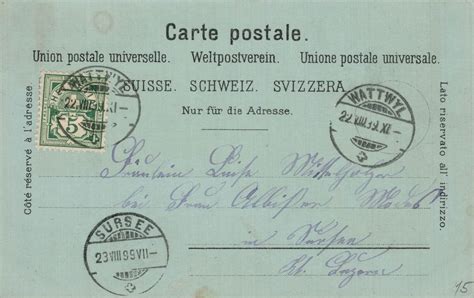 Carte postale.
Union postale universelle. Weltpostverein. Unione postale universale.
SUISSE. SCHWEIZ. SVIZZERA
Nur für die Adresse.
Côté réservé à l'adresse.
Lato riservato all' indirizzo.
5
WATTWYL
22.VIII.99.XI-
WATTWYL
22.VIII.99.XI-
Fräulein Luise
bei Frau
in Sursee
Kt. Luzern
SURSEE
23.VIII.99.VII-
15